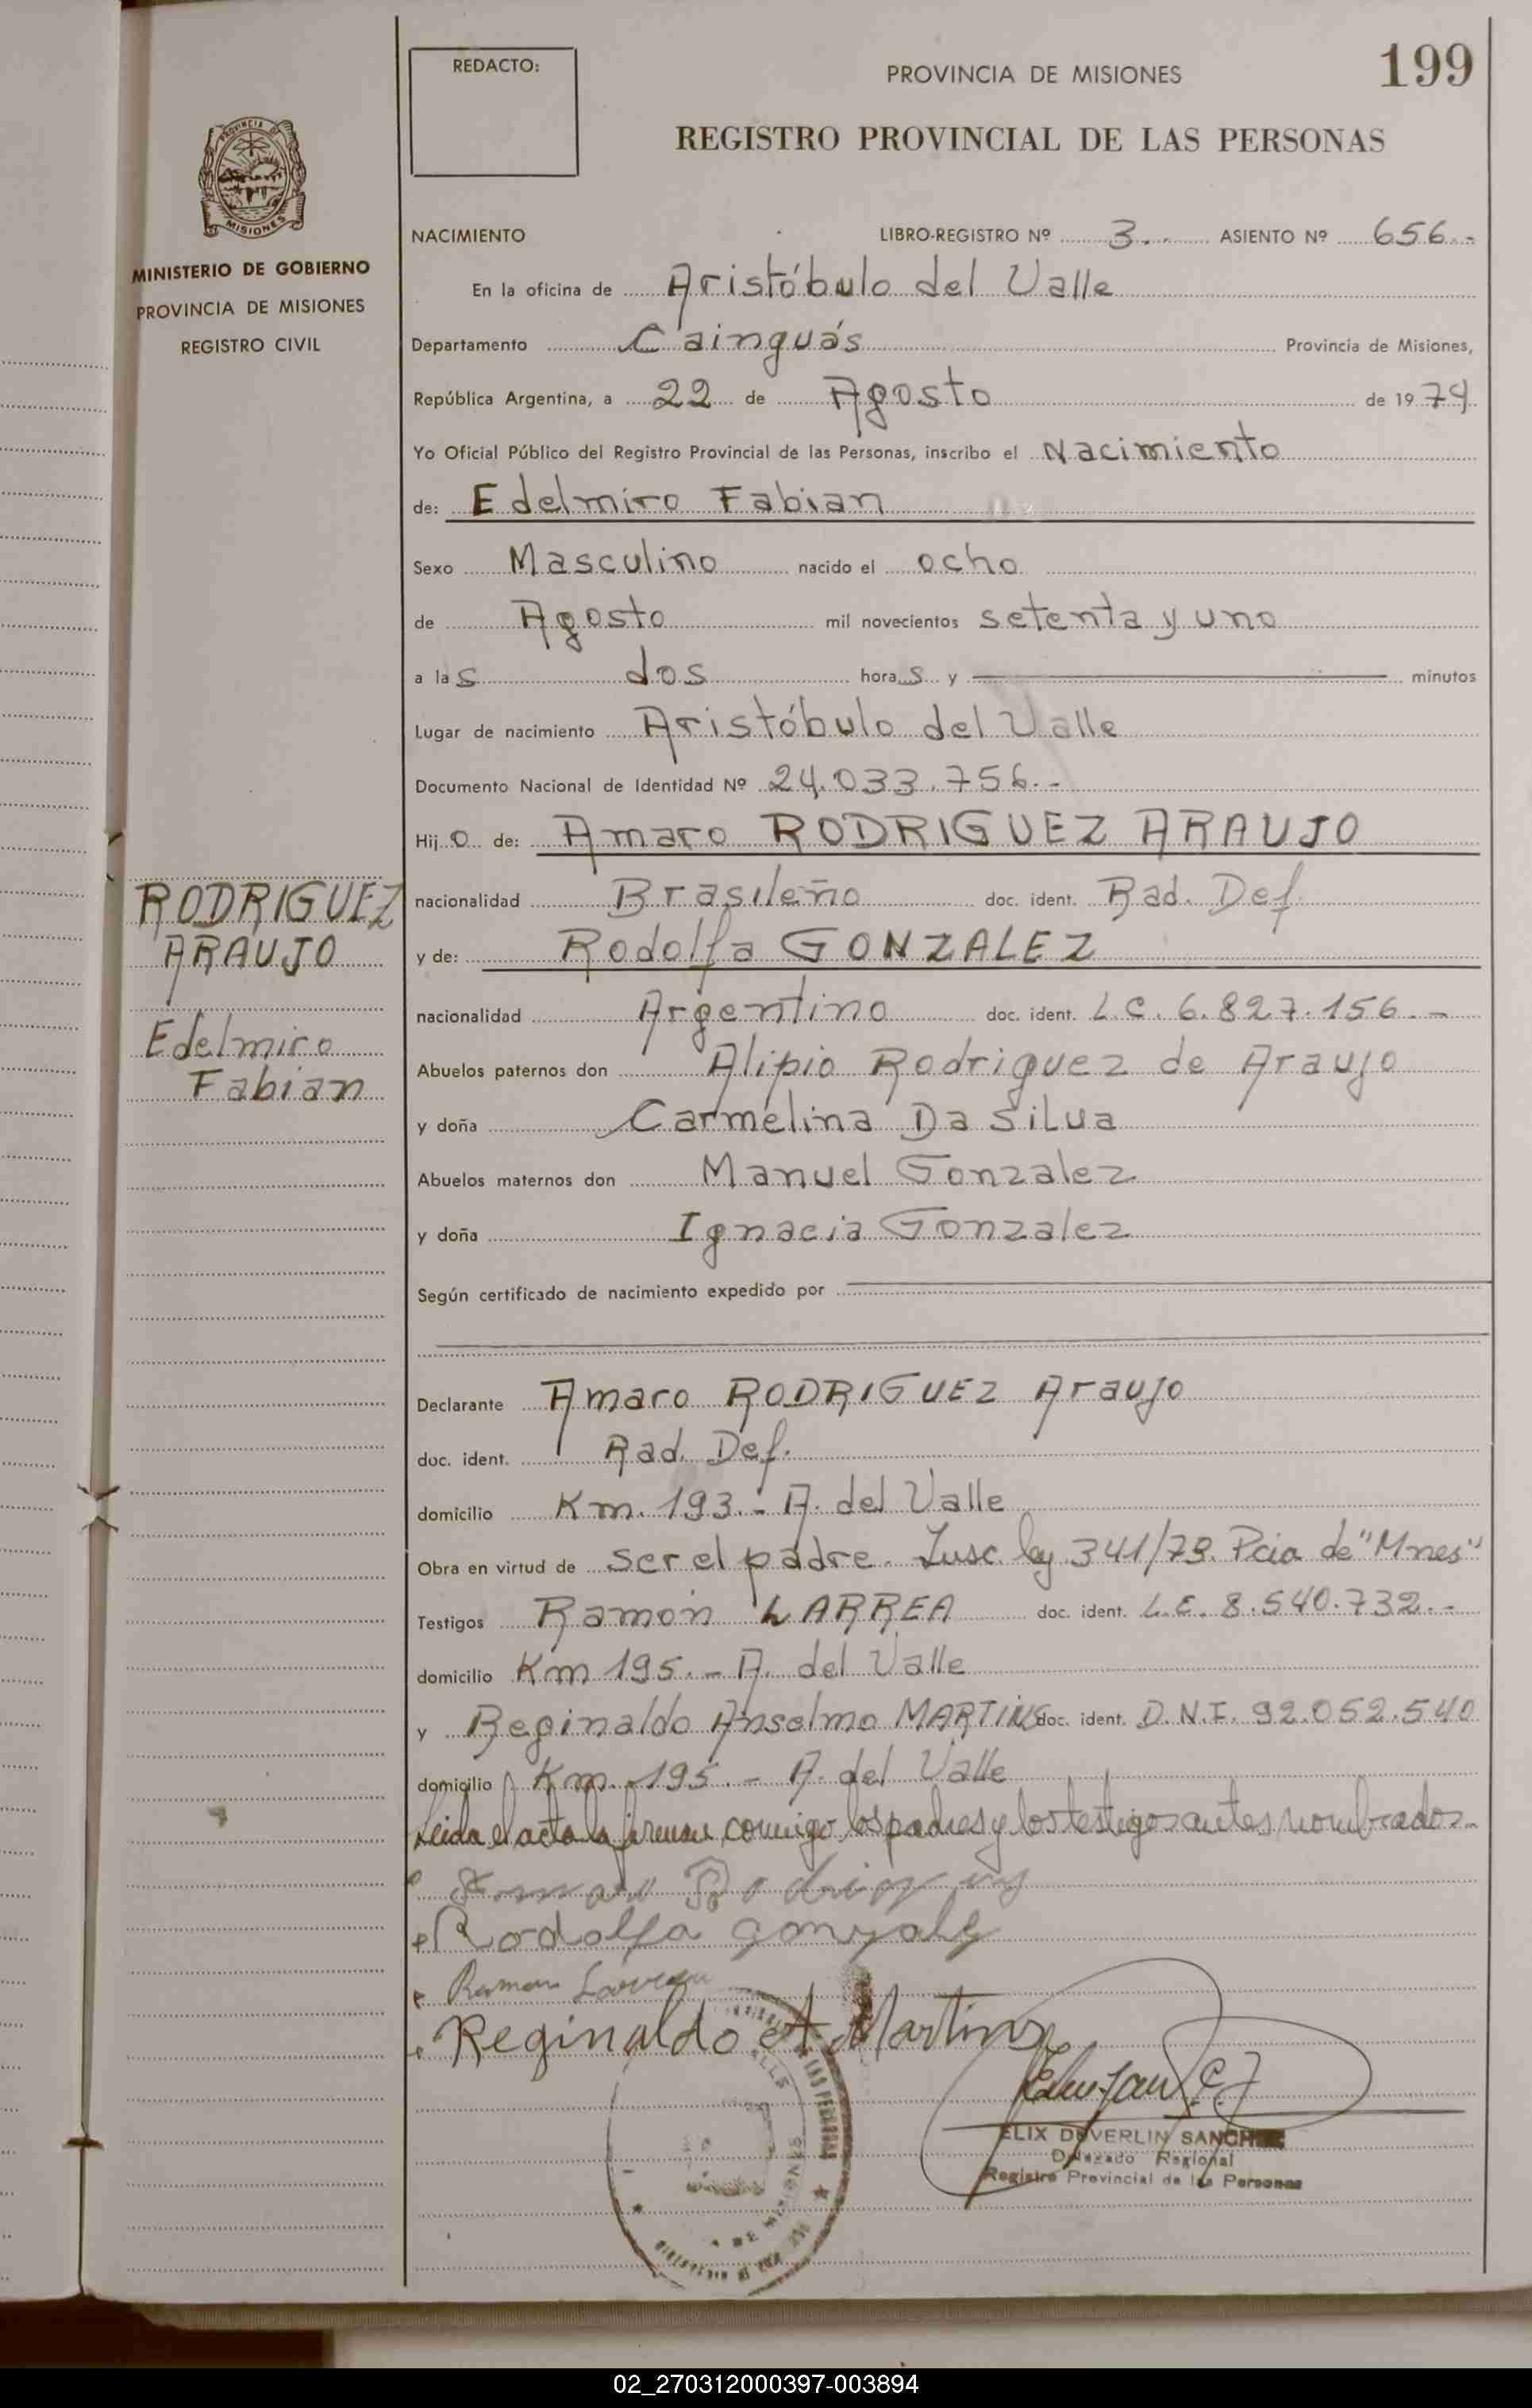 199
REDACTO:
PROVINCIA DE MISIONES
REGISTRO PROVINCIAL DE LAS PERSONAS
PROVINCIA DE
MISIONES
MINISTERIO DE GOBIERNO
PROVINCIA DE MISIONES
REGISTRO CIVIL
NACIMIENTO LIBRO-REGISTRO Nº 3.- ASIENTO Nº 656.-
En la oficina de Aristóbulo del Valle
Departamento Cainguás Provincia de Misiones,
República Argentina, a 22 de Agosto de 1974
Yo Oficial Público del Registro Provincial de las Personas, inscribo el Nacimiento
de: Edelmiro Fabian
Sexo Masculino nacido el ocho
de Agosto mil novecientos setenta y uno
a las dos horas y minutos
Lugar de nacimiento Aristóbulo del Valle
Documento Nacional de Identidad Nº 24.033.756.-
Hijo de: Amaro RODRIGUEZ ARAUJO
nacionalidad Brasileño doc. ident. Rad. Def.
y de: Rodolfa GONZALEZ
nacionalidad Argentino doc. ident. L.C. 6.827.156.-
Abuelos paternos don Alipio Rodriguez de Araujo
y doña Carmelina Da Silva
Abuelos maternos don Manuel Gonzalez
y doña Ignacia Gonzalez
Según certificado de nacimiento expedido por
RODRIGUEZ
ARAUJO
Edelmiro
Fabian
Declarante Amaro RODRIGUEZ Araujo
doc. ident. Rad. Def.
domicilio Km. 193.- A. del Valle
Obra en virtud de ser el padre. Insc. ley 341/73. Pcia de "Mnes"
Testigos Ramón LARREA doc. ident. L.E. 8.540.732.-
domicilio Km 195.- A. del Valle
y Reginaldo Anselmo MARTINS doc. ident. D.N.I. 92.052.540
domicilio Km. 195.- A. del Valle
Leida el acta la firman conmigo los padres y los testigos antes nombrados.-
Amaro Rodriguez
Rodolfa gonzalez
Ramon Larrea
Reginaldo A Martins
LAS PERSONAS
DE MISIONES
ELIX DUVERLIN SANCHEZ
Delegado Regional
Registro Provincial de las Personas
02_270312000397-003894